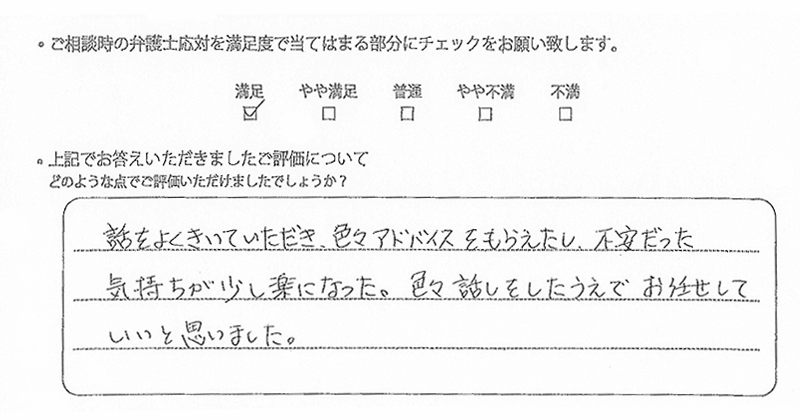 。ご相談時の弁護士応対を満足度で当てはまる部分にチェックをお願い致します。
満足 やや満足 普通 やや不満 不満
☑ □ □ □ □
。上記でお答えいただきましたご評価について
どのような点でご評価いただけましたでしょうか？
話をよくきいていただき、色々アドバイスをもらえたし、不安だった
気持ちが少し楽になった。色々話しをしたうえでお任せして
いいと思いました。